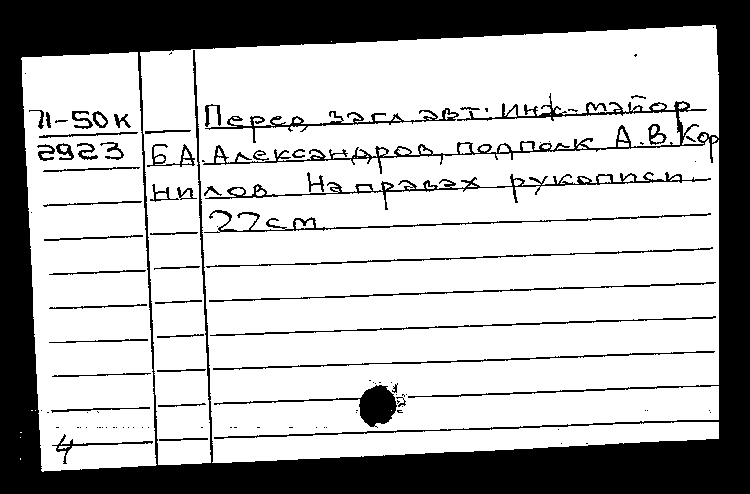 Л-50к Перед загл. авт: инж-майор
2923 Б А. Александров, подполк. А.В.Кор
нилов. На правах рукописи.
22см.
4